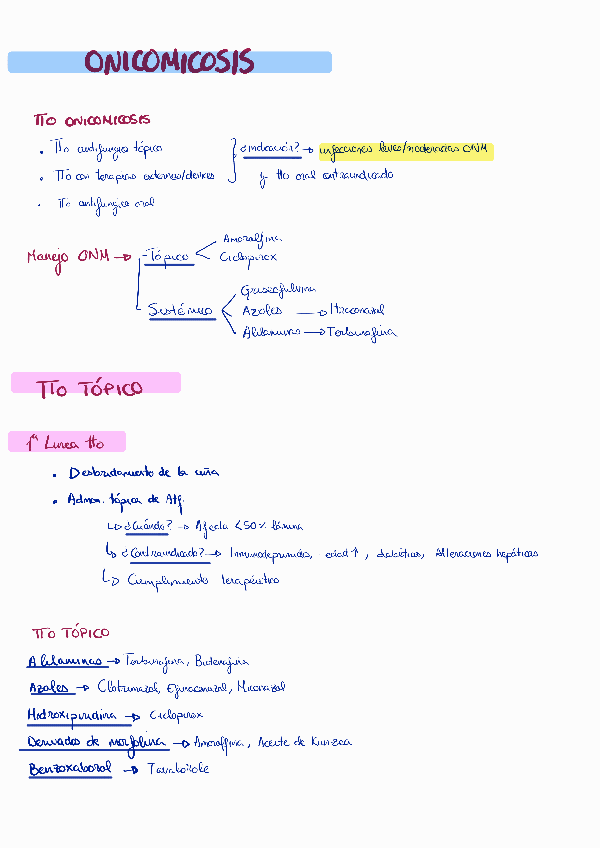 ONICOMICOSIS
TTO ONICOMICOSIS
• TTo antifúngico tópico
• TTo con terapias externas/devices
• TTo antifúngico oral
¿Indicación? → infecciones leves/moderadas ONM
y tto oral contraindicado
Manejo ONM → - Tópico
Amorolfina
Ciclopirox
Sistémico
Griseofulvina
Azoles → Itraconazol
Alilaminas → Terbinafina
TTO TÓPICO
1ª Línea tto
• Desbridamiento de la uña
• Admon. tópica de Atf.
↳ ¿Cuándo? → Afecta <50% lámina
↳ ¿Contraindicado? → Inmunodeprimidos, edad ↑, diabéticos, Alteraciones hepáticas
↳ Cumplimiento terapéutico
TTO TÓPICO
Alilaminas → Terbinafina, Butenafina
Azoles → Clotrimazol, Efinaconazol, Miconazol
Hidroxipiridina → Ciclopirox
Derivados de morfolina → Amorolfina, Aceite de Kunzea
Benzoxaborol → Tavaborole